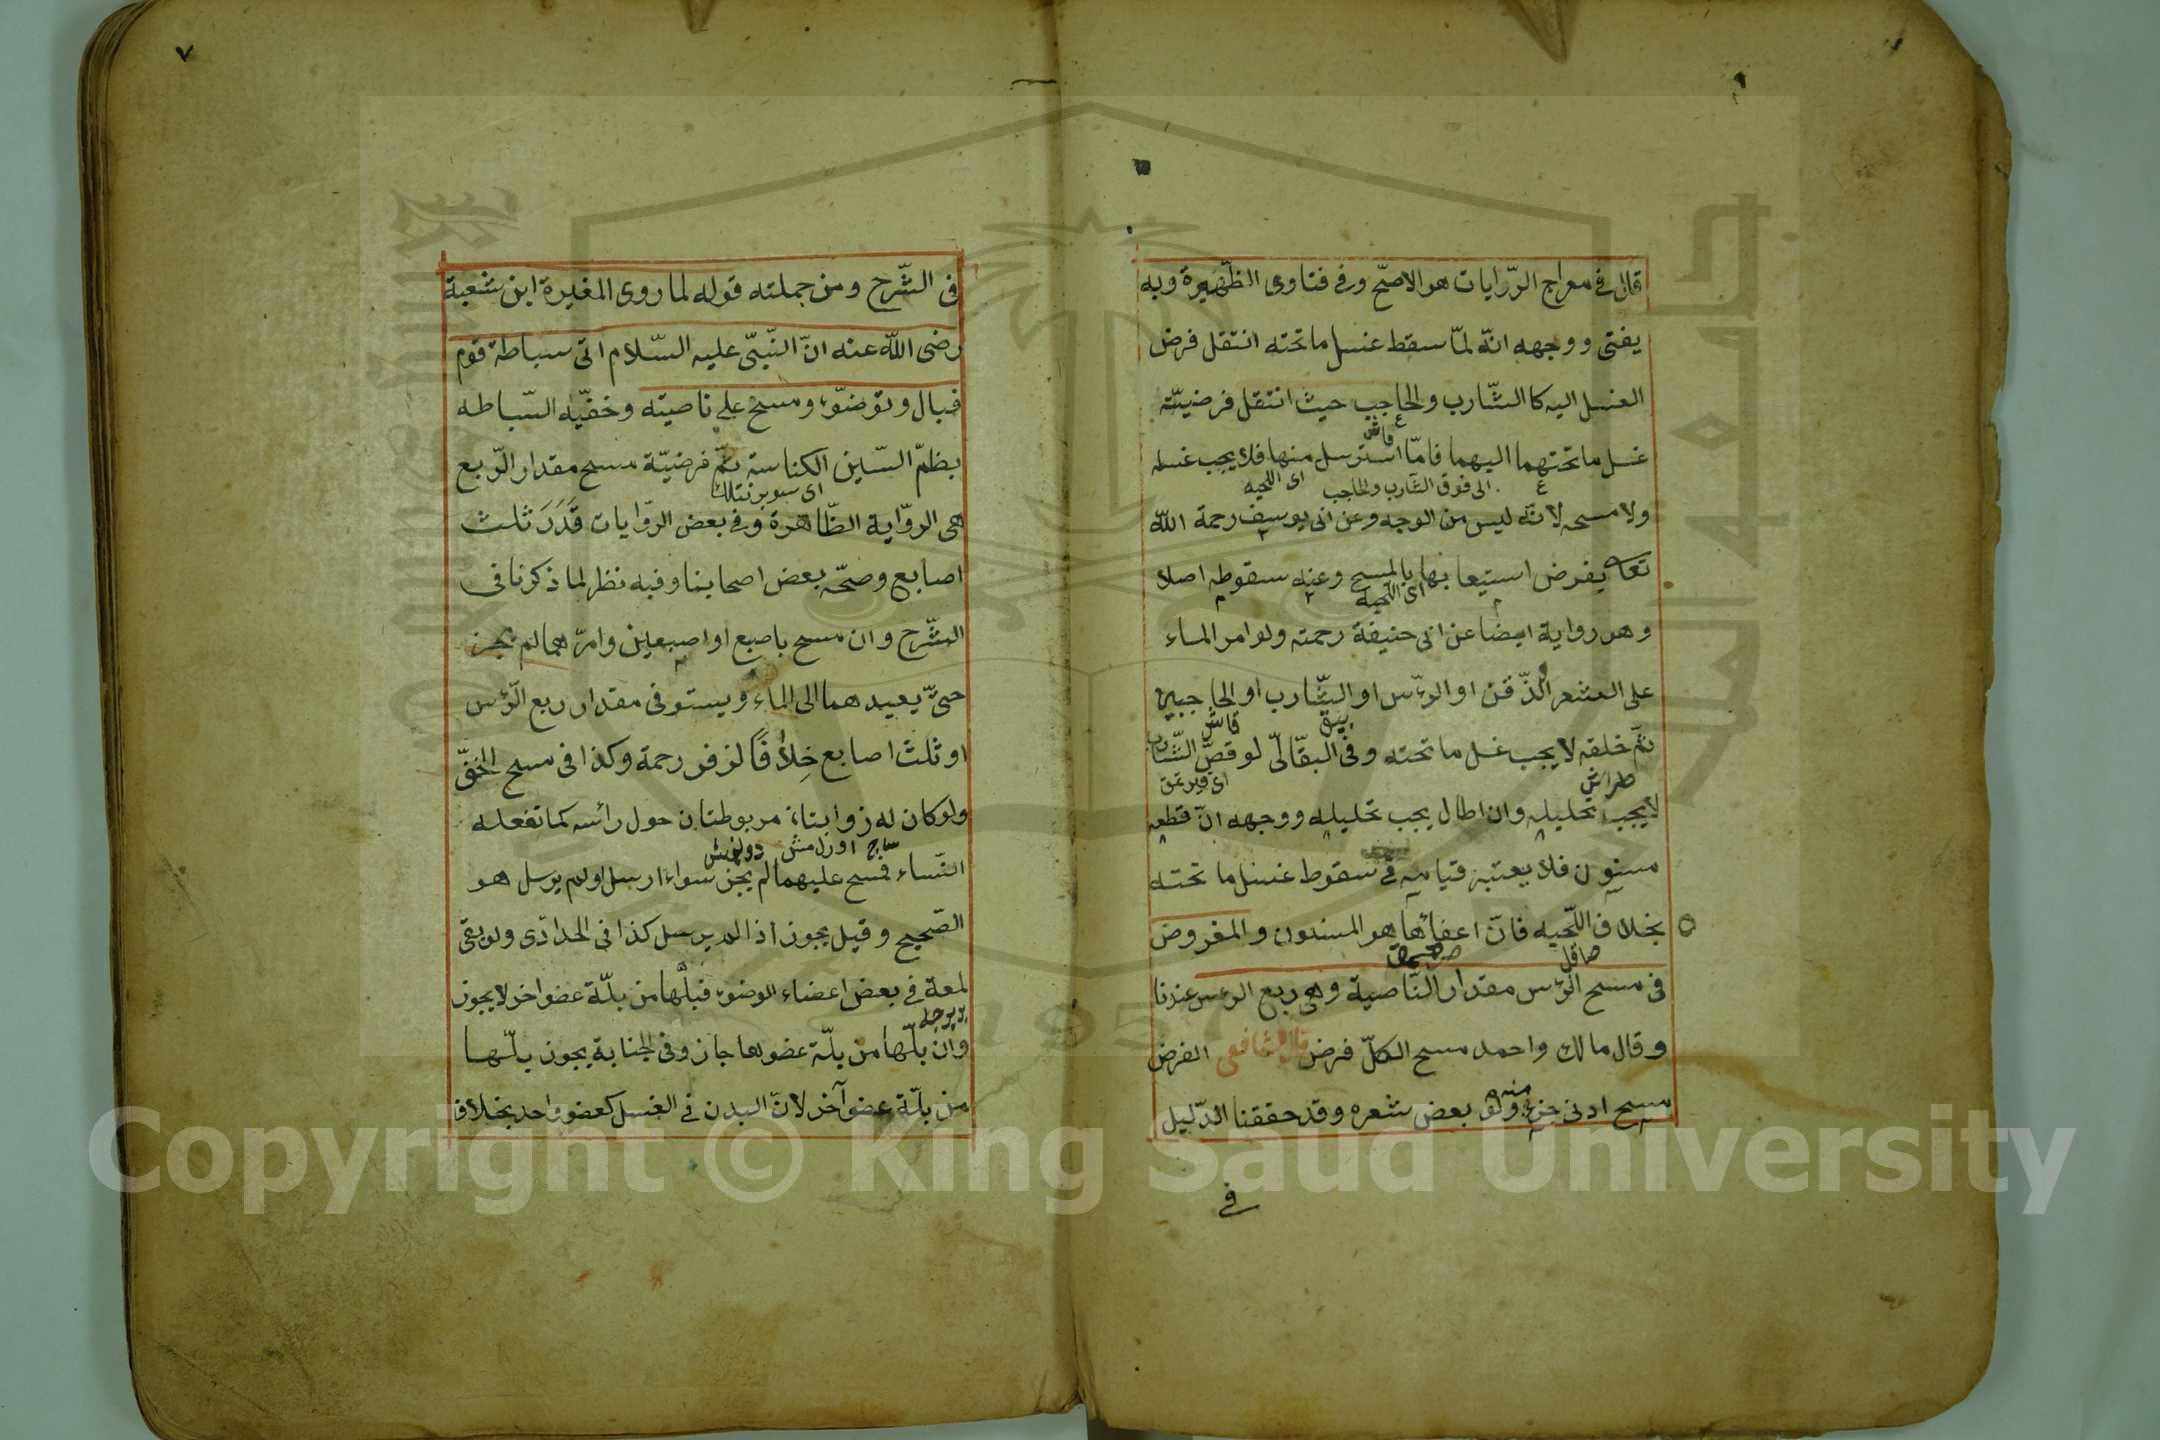 قال في معراج الدّرايات هو الاصحّ وفي فتاوى الظّهيرة وبه
يفتى ووجهه انّه لمّا سقط غسل ما تحته انتقل فرض
الغسل اليه كا الشّارب والحاجب حيث انتقل فرضيّته
قاش
غسل ما تحتهما اليهما فامّا استرسل منها فلا يجب غسله
الى فوق الشّارب والحاجب
اى اللّحيه
ولا مسحه لانّه ليس من الوجه وعن ابى يوسف رحمة اللّه
تعا يفرض استيعابها بالمسح وعنه سقوطه اصلا
اى اللّحيه
وهو رواية ايضا عن ابى حنيفة رحمته ولو امر الماء
على الشعر الذّقن او الرّس او الشّارب او الحاجبين
بيق
قاش
ثمّ خلقه لا يجب غسل ما تحته وفى البقّالىّ لو قصّ الشّارب
طراش
لا يجب تحليله وان اطال يجب تحليله ووجهه انّ قطعه
مسنون فلا يعتبر قيامه فى سقوط غسل ما تحته
بخلاف اللّحيه فانّ اعفائها هو المسنون والمفروض
صاقل
فى مسح الرّس مقدار النّاصية وهى ربع الرس عندنا
وقال مالك واحمد مسح الكلّ فرض قال الشافعى الفرض
منه
مسح ادنى جزء ولو بعض شعره وقد حققنا الدّليل
فى
٧
فى الشّرح ومن جملته قوله لما روى المغيرة ابن شعبة
رضى اللّه عنه انّ النّبّى عليه السّلام اتى سباطة قوم
فبال وتوضّوء ومسح على ناصيته وخفّيه السّباطه
بظمّ السّين الكناسة ثمّ فرضيّة مسح مقدار الرّبع
اى سوبرنتلك
هى الروّاية الظّاهرة وفى بعض الروّايات قَدَرَ ثلث
اصابع وصحّه بعض اصحابنا وفيه نظر لما ذكرنا فى
الشّرح وان مسح باصبع او اصبعين وامرّ هما لم يجز
حتىّ يعيد هما الى الماء ويستوفى مقدار ربع الرّس
او ثلث اصابع خِلاْفًا لزفر رحمة وكذا فى مسح الخفّ
ولو كان له زوابتان مربوطتان حول رأسه كما تفعله
ساج اورلمش
النّساء فمسح عليهما لم يجز سواء ارسل او لم يرسل هو
الصّحيح وقيل يجوز اذا لم يرسل كذا فى الحدادّى ولو بقى
لمعة فى بعض اعضاء الوضوء فبلّها من بلّة عضو اخر لا يجوز
وان بلّها من بلّة عضوها جاز وفى الجنابة يجوز بلّها
من بلّة عضو آخر لانّ البدن فى الغسل كعضو واحد بخلاف
Copyright © King Saud University
1957